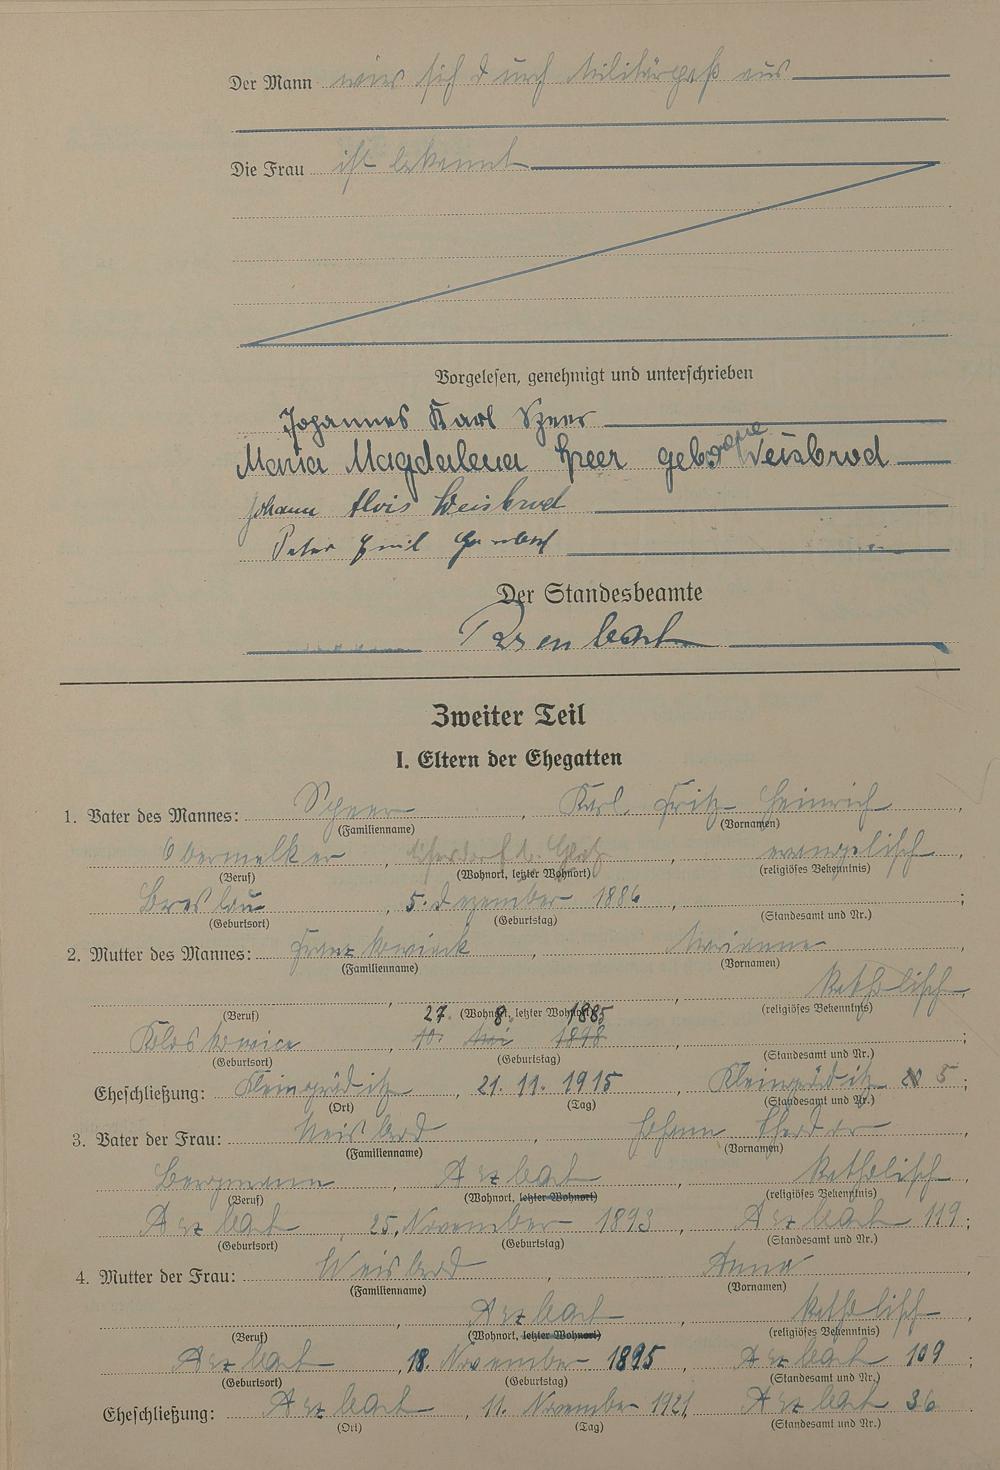 Der Mann wies sich durch Militärpaß aus
Die Frau ist bekannt
Vorgelesen, genehmigt und unterschrieben
Johannes Karl
Maria Magdalena geborene Weisbrod
Johann Alois Weisbrod
Peter Emil
Der Standesbeamte
Zweiter Teil
I. Eltern der Ehegatten
1. Vater des Mannes: Karl Fritz Heinrich ,
(Familienname) (Vornamen)
Obermelker , , evangelisch ,
(Beruf) (Wohnort, letzter Wohnort) (religiöses Bekenntnis)
Breslau , 5. Dezember 1886 , ;
(Geburtsort) (Geburtstag) (Standesamt und Nr.)
2. Mutter des Mannes: , Marianna ,
(Familienname) (Vornamen)
, , katholisch ,
(Beruf) (Wohnort, letzter Wohnort) (religiöses Bekenntnis)
27. 8. 1885
, 10. Mai 1898 , ;
(Geburtsort) (Geburtstag) (Standesamt und Nr.)
Eheschließung: Kleingräditz , 21. 11. 1915 , Kleingräditz 5 ;
(Ort) (Tag) (Standesamt und Nr.)
3. Vater der Frau: Weisbrod , Johann Theodor ,
(Familienname) (Vornamen)
Bergmann , Arzbach , katholisch ,
(Beruf) (Wohnort, letzter Wohnort) (religiöses Bekenntnis)
Arzbach , 25. November 1893 , Arzbach 119 ;
(Geburtsort) (Geburtstag) (Standesamt und Nr.)
4. Mutter der Frau: Weisbrod , Anna ,
(Familienname) (Vornamen)
, Arzbach , katholisch ,
(Beruf) (Wohnort, letzter Wohnort) (religiöses Bekenntnis)
Arzbach , 18. November 1895 , Arzbach 109 ;
(Geburtsort) (Geburtstag) (Standesamt und Nr.)
Eheschließung: Arzbach , 11. November 1921 , Arzbach 36 .
(Ort) (Tag) (Standesamt und Nr.)